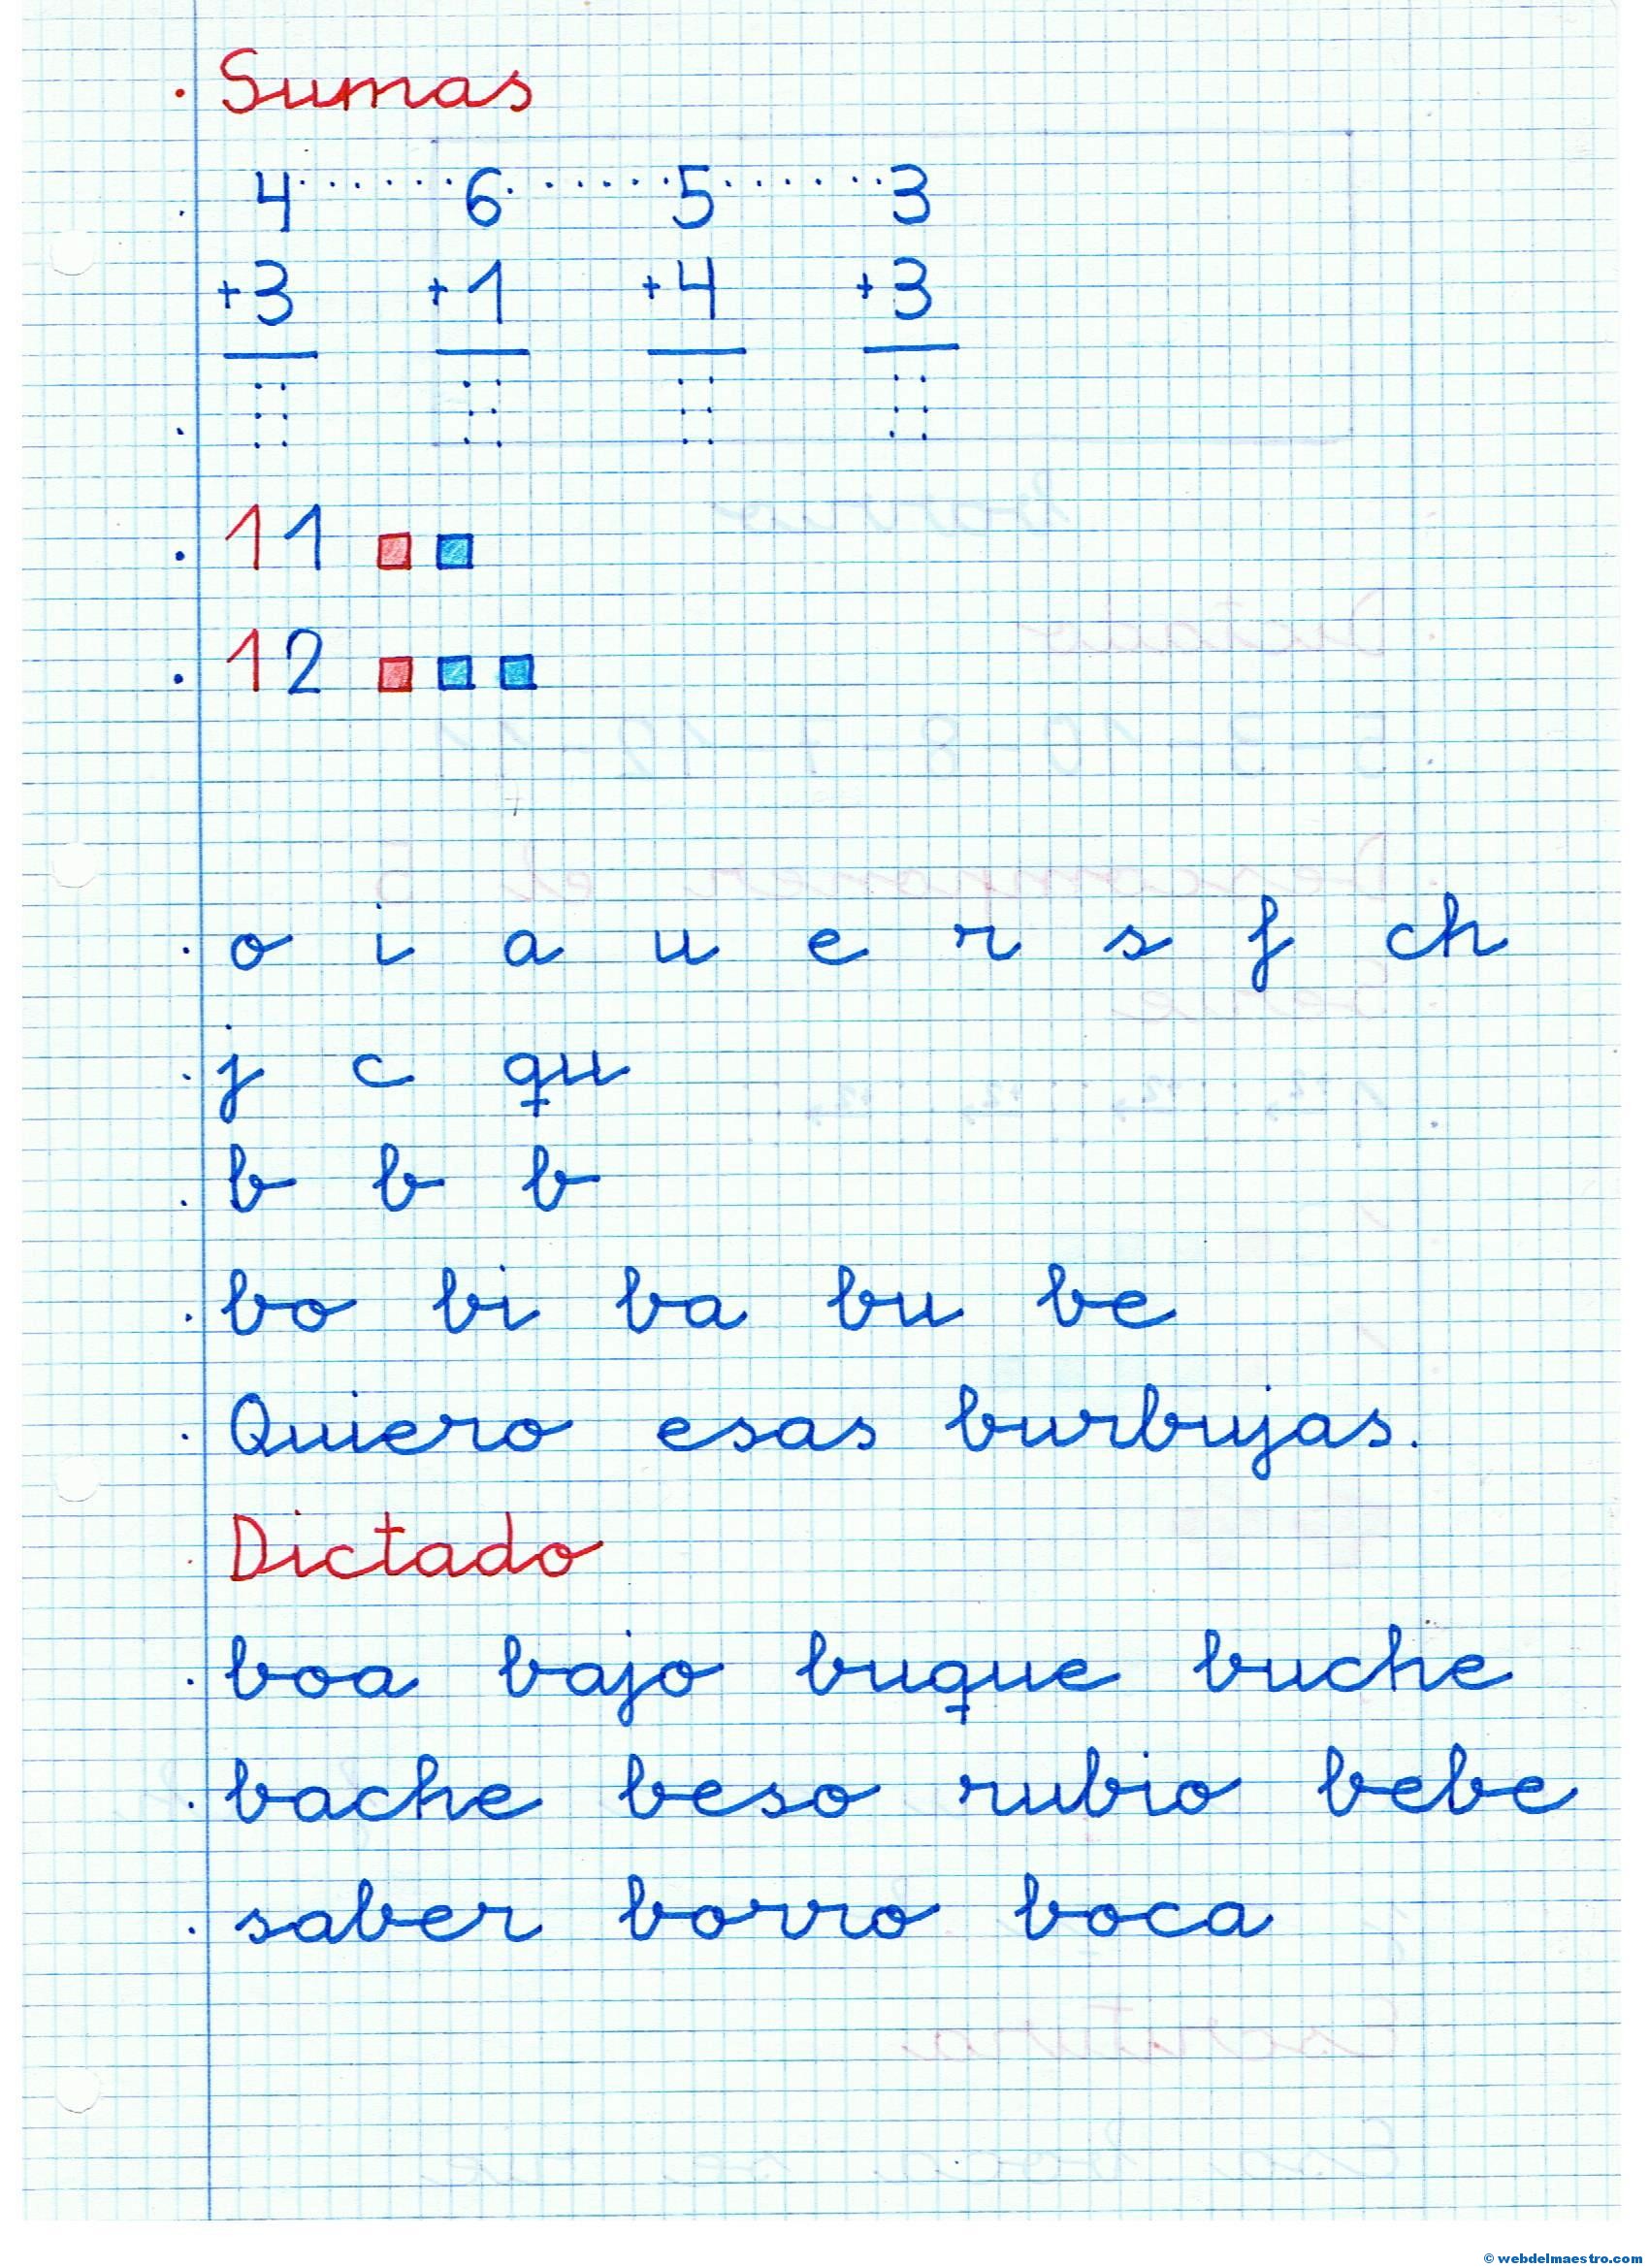 Sumas
4 6 5 3
+3 +1 +4 +3
11
12
o i a u e r s f ch
j c qu
b b b
bo bi ba bu be
Quiero esas burbujas.
Dictado
boa bajo buque buche
bache beso rubio bebe
saber borro boca
© webdelmaestro.com